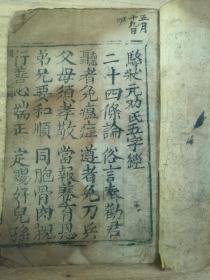 五月
十九日
駱狀元劝民五字經
二十四條論 俗言奉勸君
聽者免瘟症 遵者免刀兵
父母須孝敬 當報養育恩
弟兄要和順 同胞骨肉親
行善心端正 定賜好兒孫